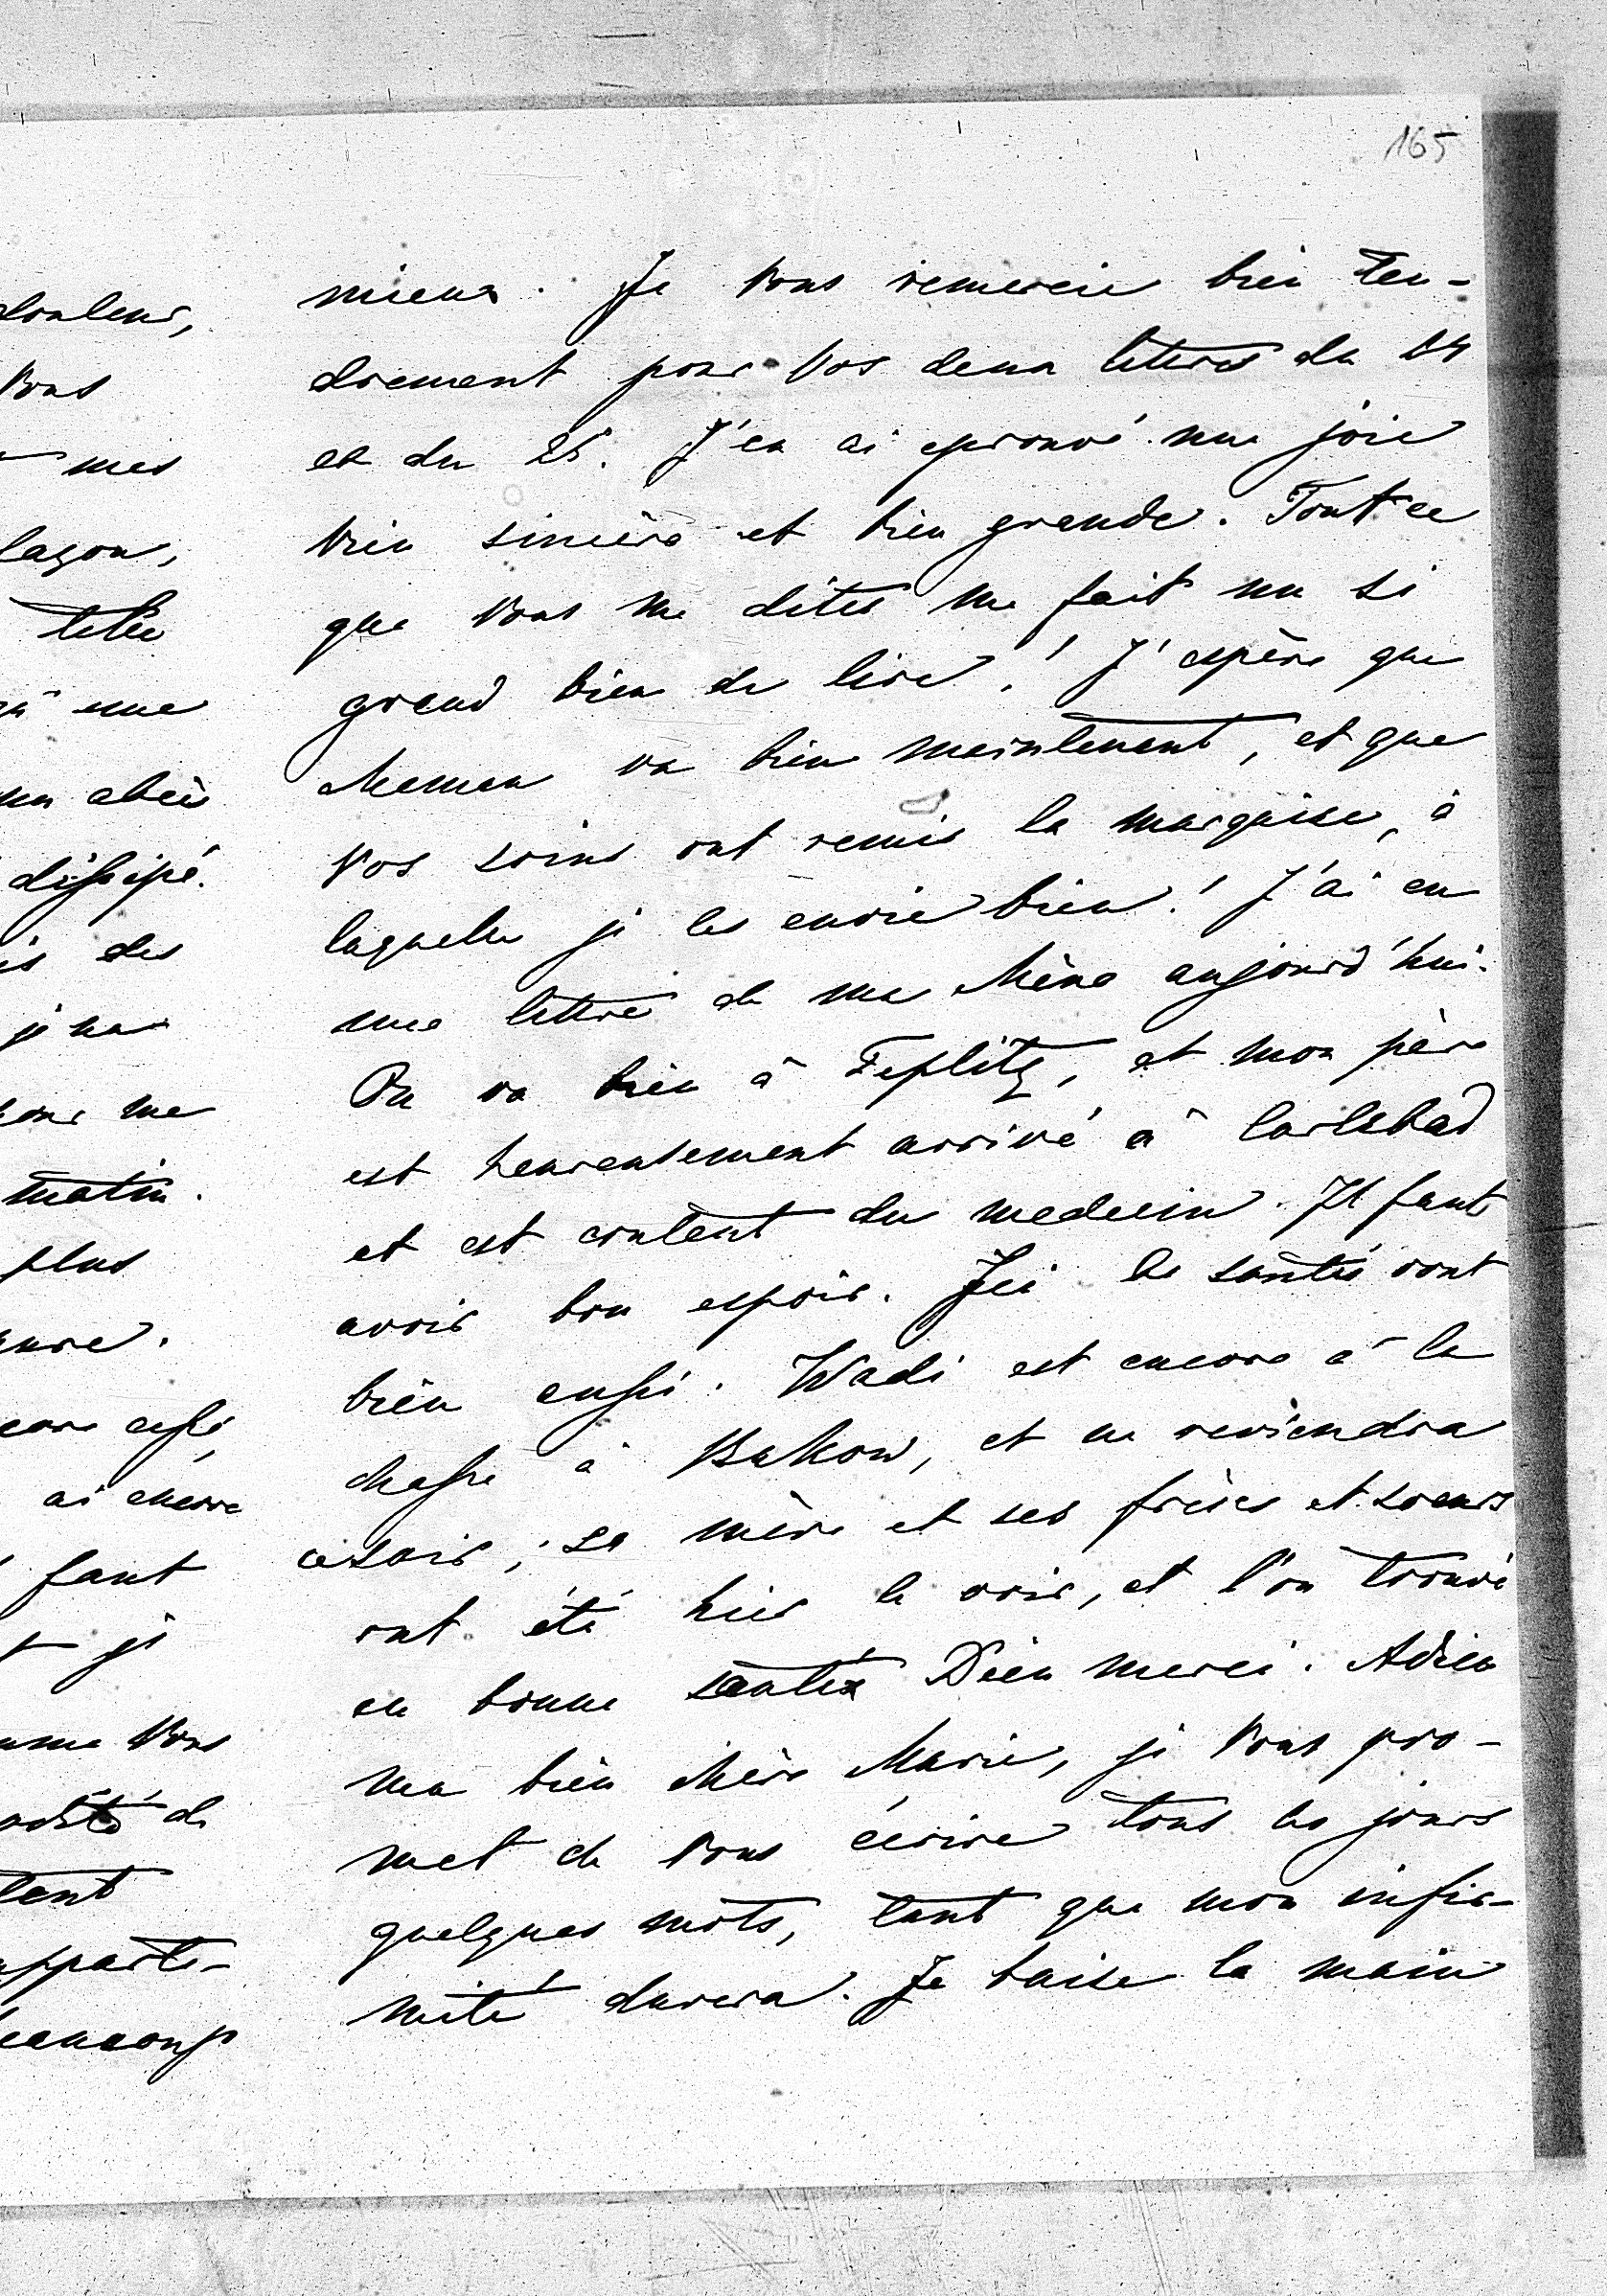 165
douleur,
Vous
mes
façon,
tete
une
un abcès
dissipé.
des
je ne
pour me
matin.
plus
ai encore
faut
je
Vous
de
tent
apparte-
beaucoup
mieux. Je Vous remercie bien ten-
drement pour Vos deux lettres du 24
et du 25. J'en ai eprouvé une joie
bien sincère et bien grande. Tout ce
que Vous me dites me fait un si
grand bien de lire! J'espère que
Maman va bien maintenant, et que
Vos soins ont remis la marquise, à
laquelle je les envie bien! J'ai eu
une lettre de ma Mère aujourd'hui.
On va bien à Teplitz, et mon père
est heureusement arrivé à Carlsbad
et est content du medecin. Il faut
avoir bon espoir. Ici les santés vont
bien aussi. Wadi est encore à la
chasse à Bukow, et en reviendra
ce soir; sa mère et ses frères et soeurs
ont été hier le voir, et l'on trouvé
en bonne santé Dieu merci. Adieu
ma bien chère Marie, je Vous pro-
met de Vous écrire tous les jours
quelques mots, tant que mon infir-
mité durera. Je baise la main